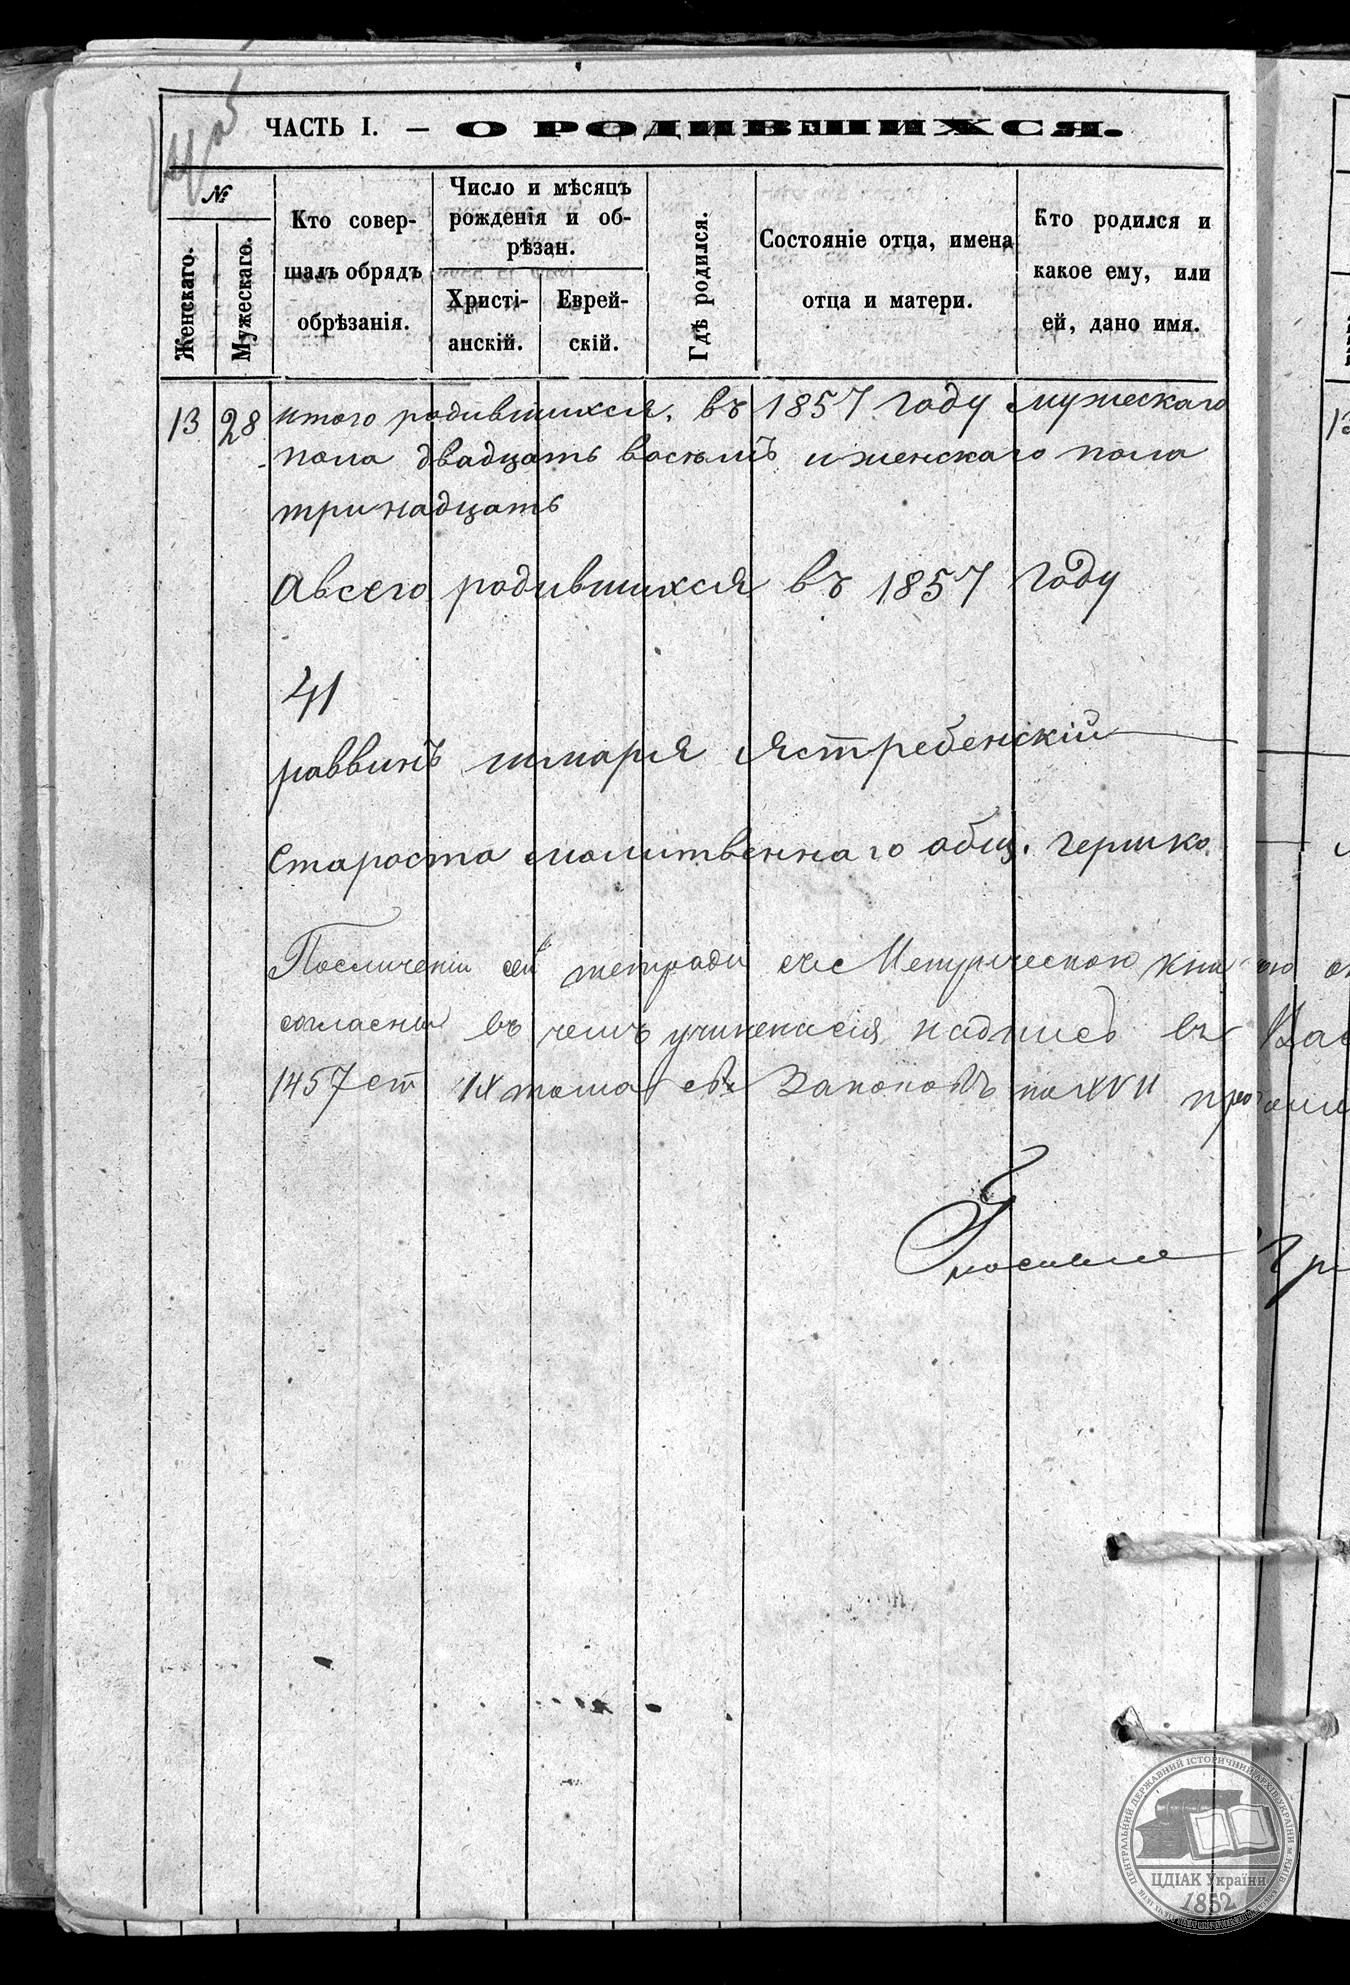 ЧАСТЬ I. — О РОДИВШИХСЯ.
№
Женскаго.
Мужескаго.
Кто совер-
шалъ обрядъ
обрѣзанія.
Число и мѣсяцъ
рожденія и об-
рѣзан.
Христі-
анскій.
Еврей-
скій.
Гдѣ родился.
Состояніе отца, имена
отца и матери.
Кто родился и
какое ему, или
ей, дано имя.
13 28 итого родившихся, въ 1857 году мужескаго
пола двадцать восемъ и женскаго пола
тринадцать
а всего родившихся въ 1857 году
41
раввинъ шмаря Ястребенскій
Староста молитвеннаго общ. гершко
По сличеніи сей тетради съ Метрическою
согласны въ чемъ учиненася надпись въ
1457 ст IX тома св. Законовъ по XVII
ЦДІАК України
1852